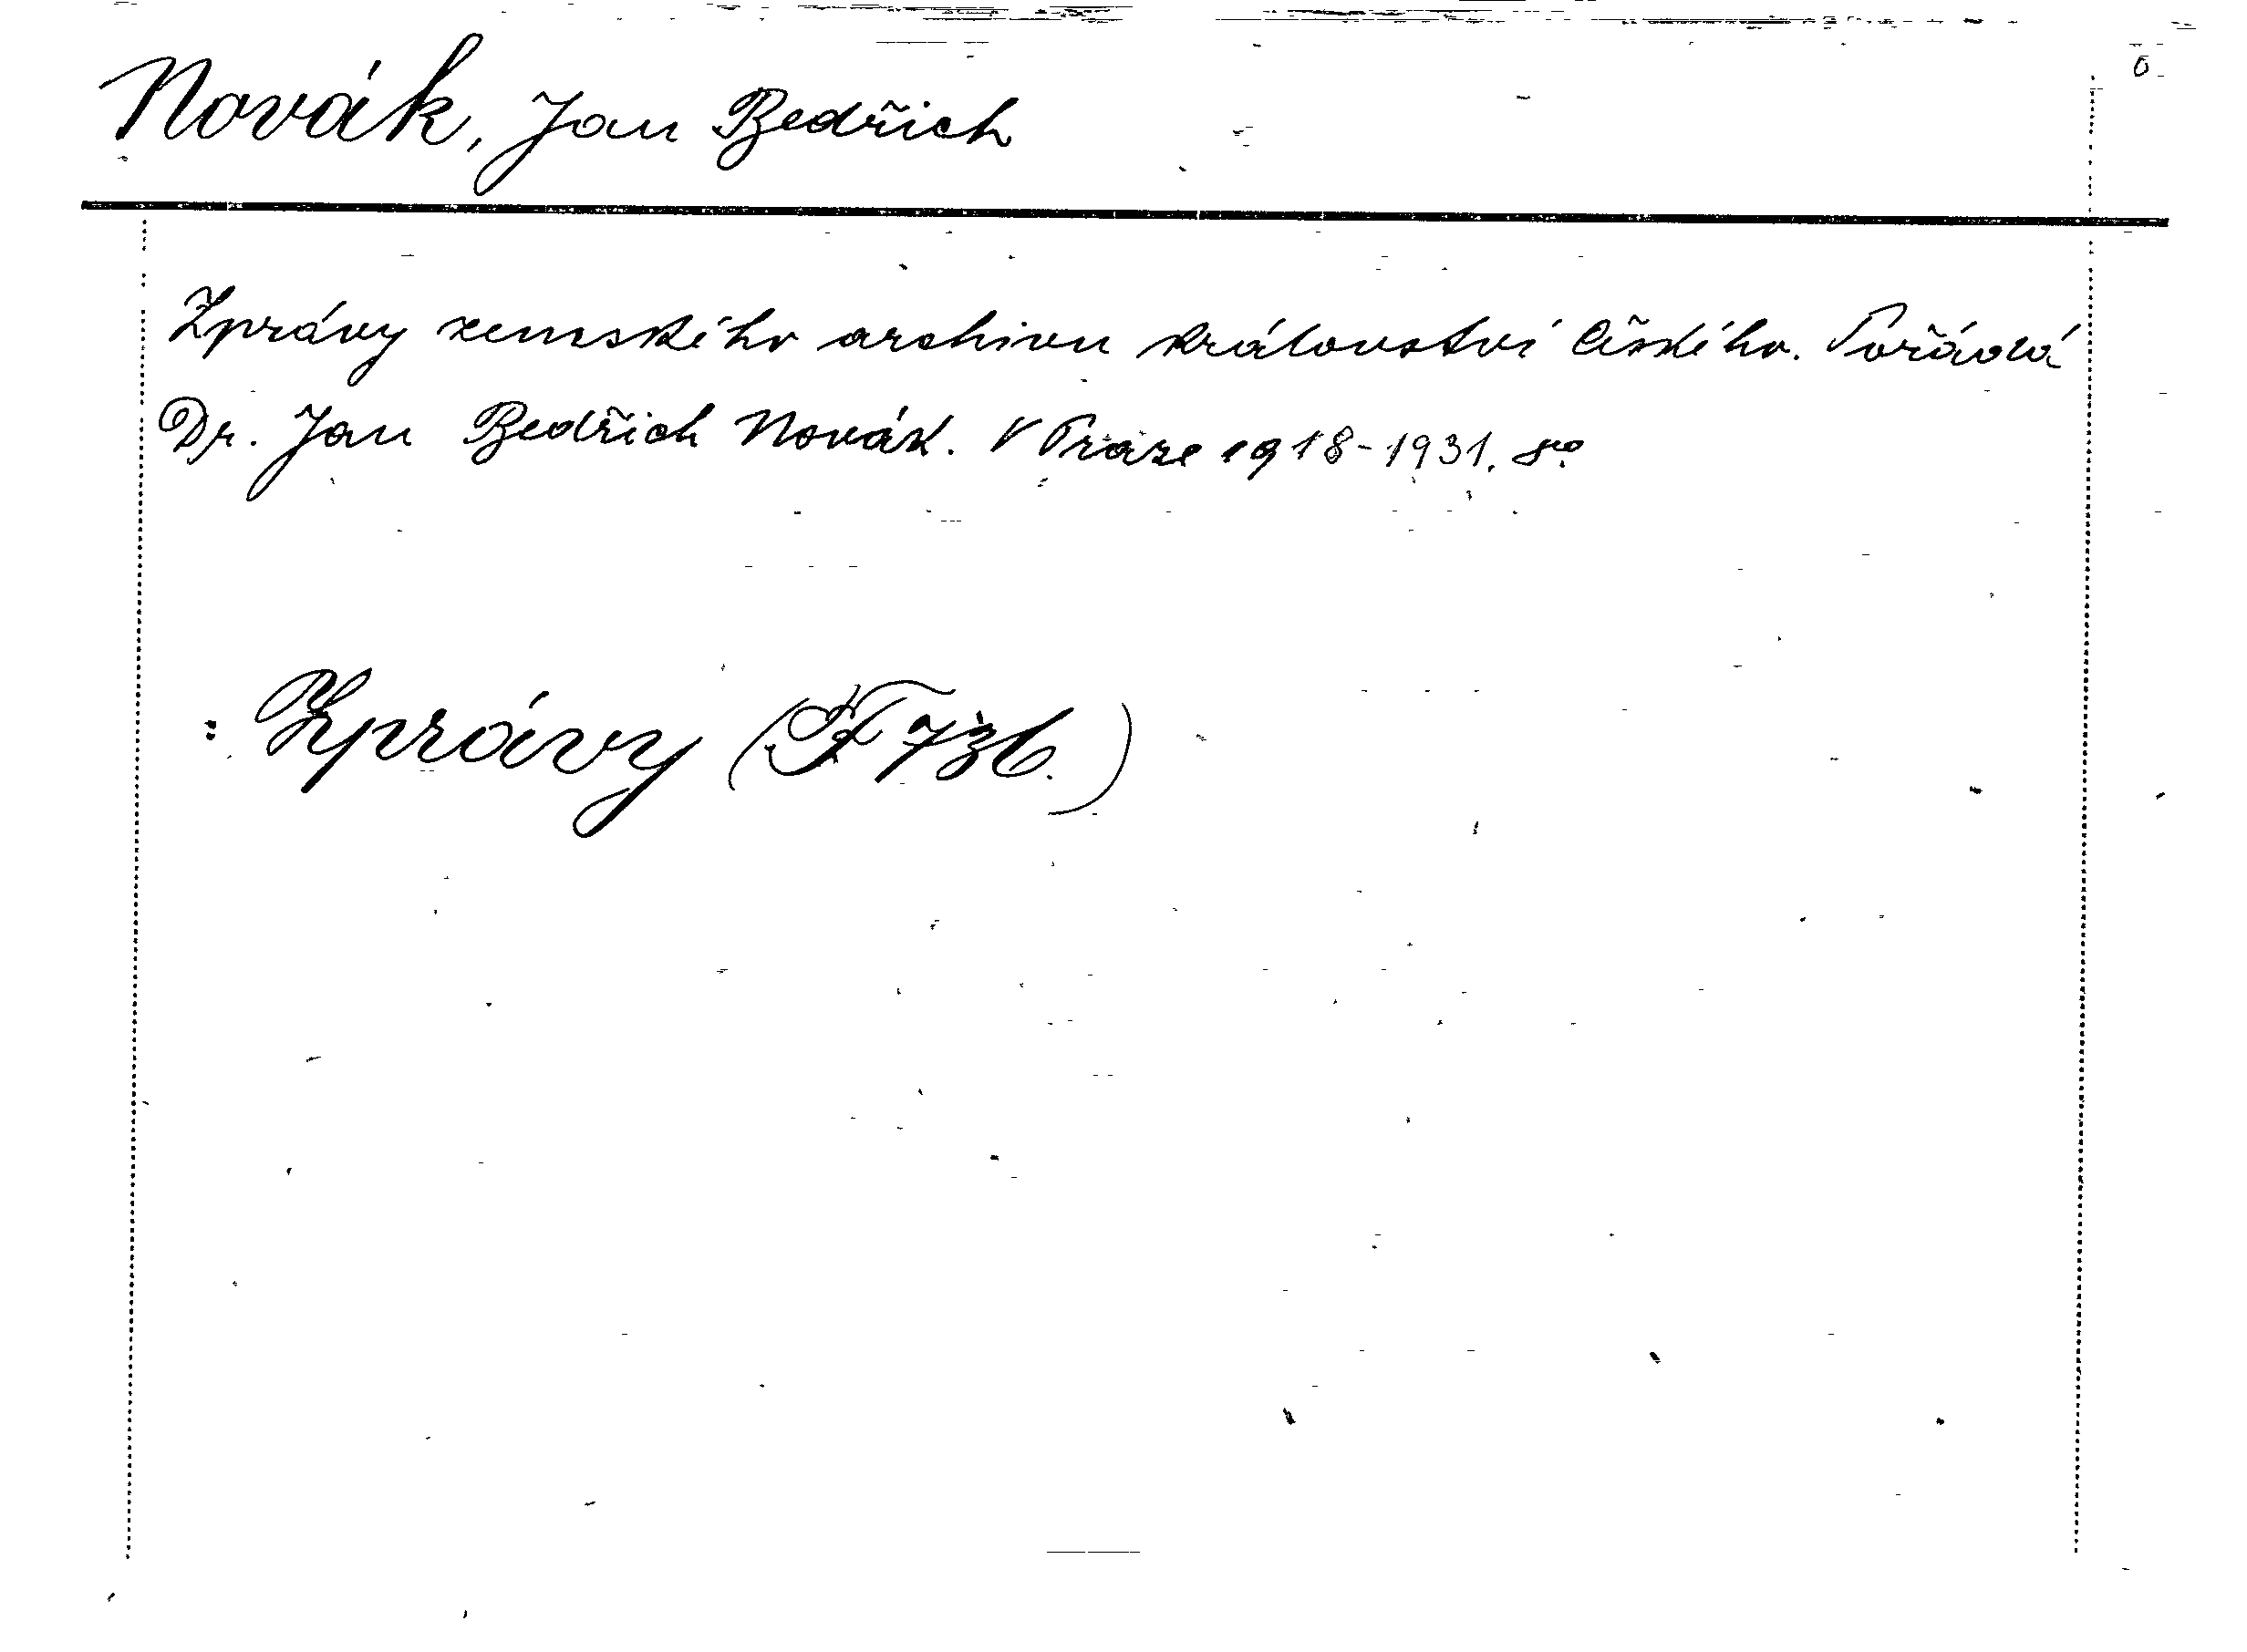 Novák, Jan Bedřich
Zprávy zemského archivu království Českého. Pořádá
Dr. Jan Bedřich Novák. V Praze 1918-1931. 8vo.
: Zprávy